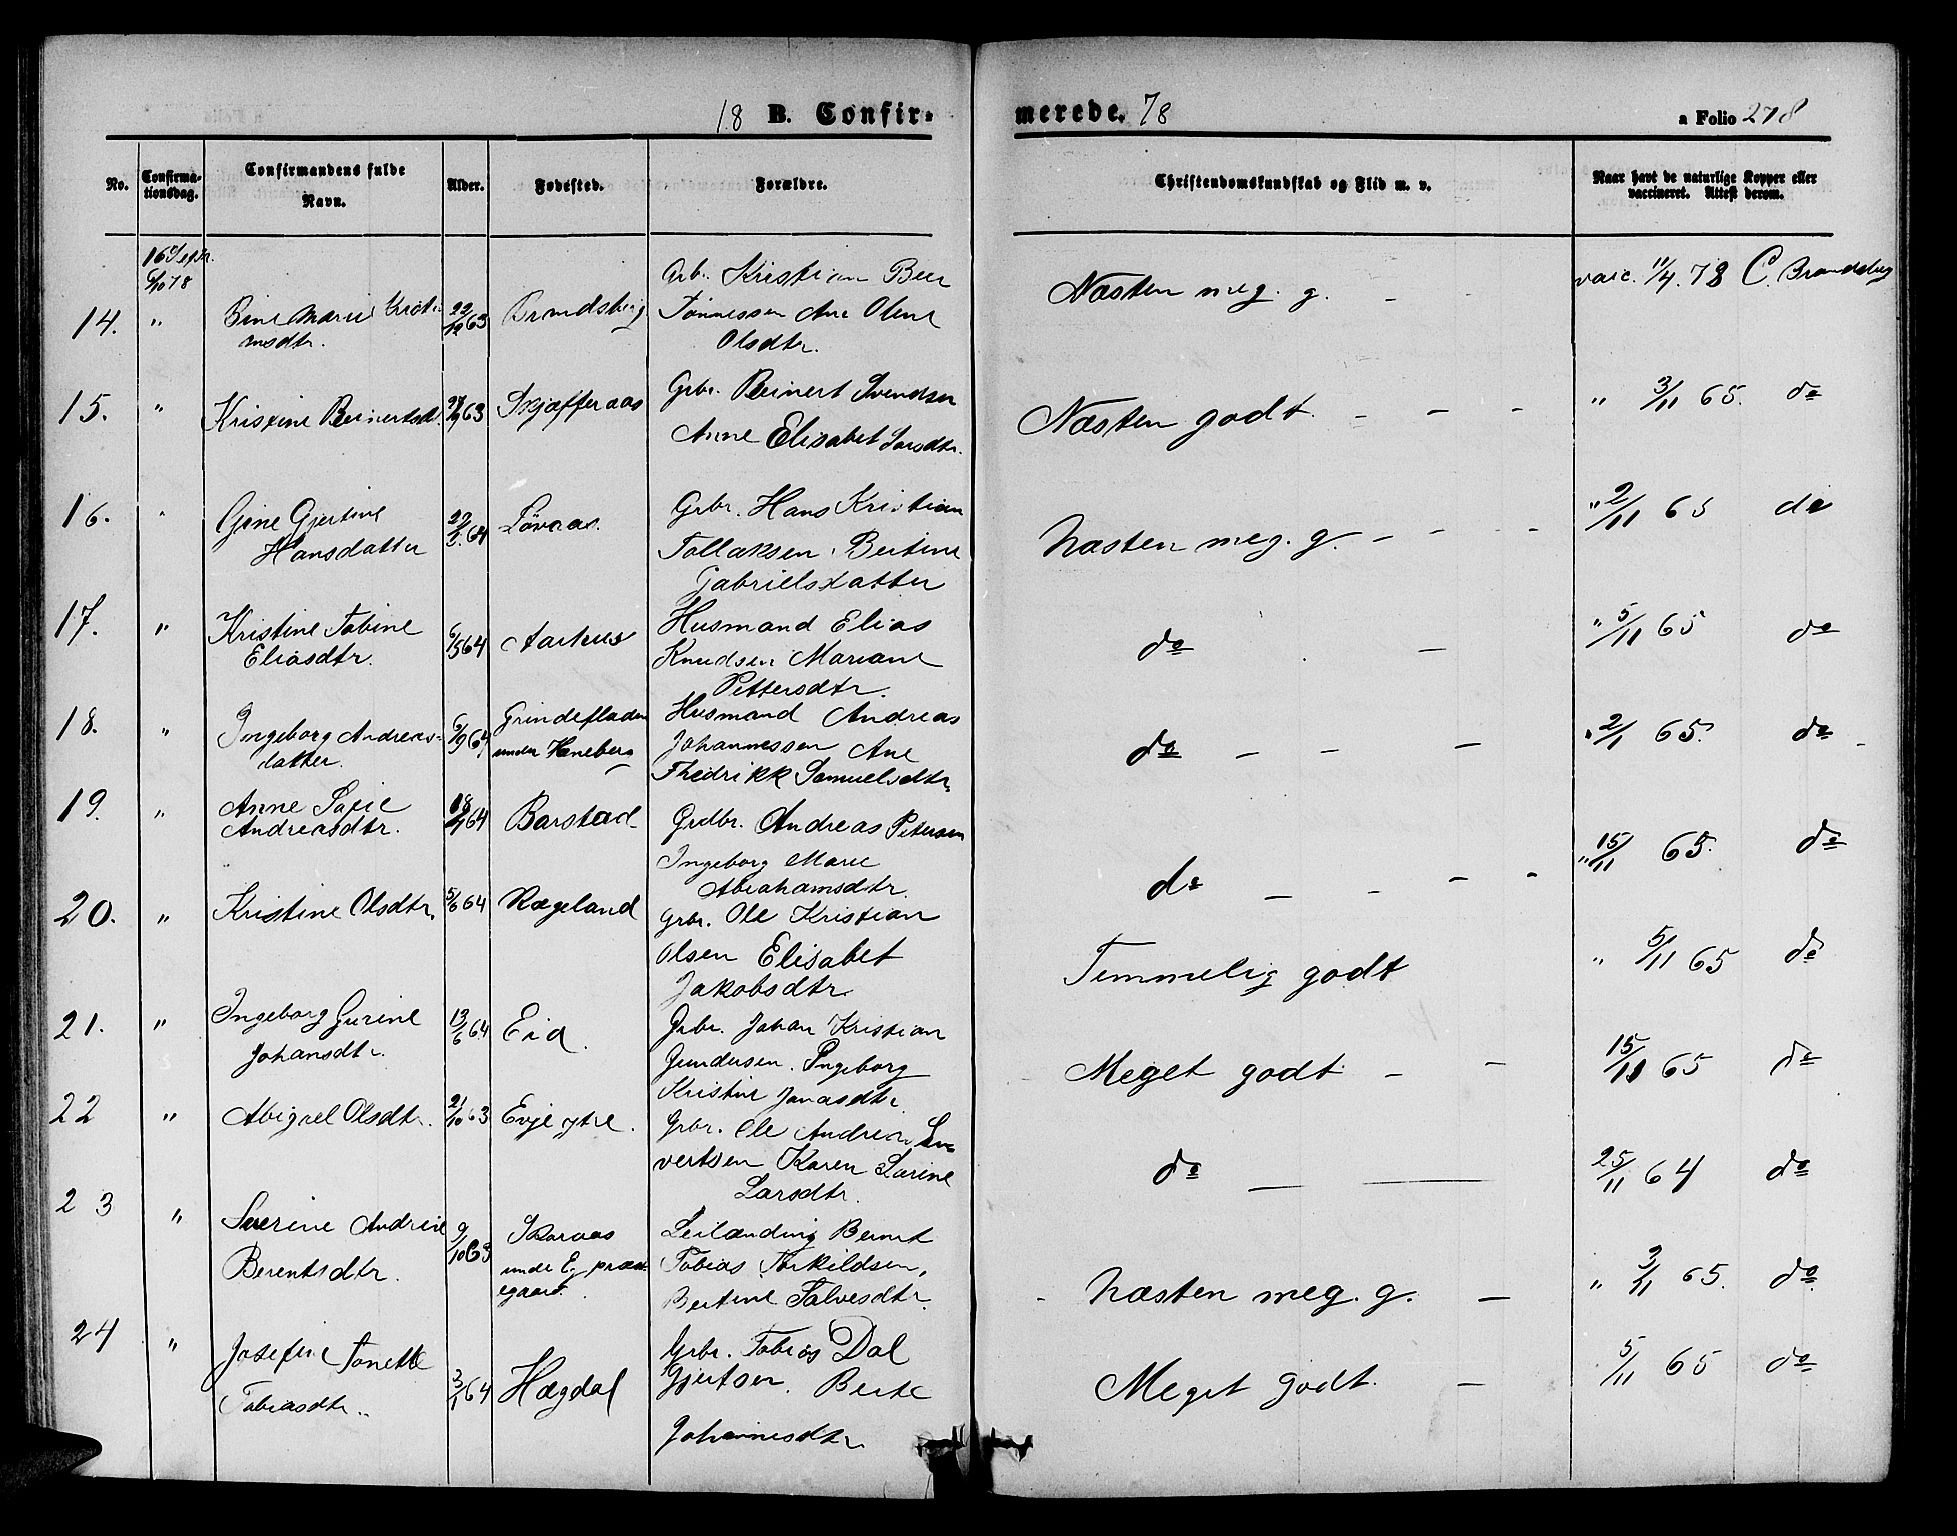 18 B. Confir-
merede. 78
a Folio 278
No.
Confirma-
tionsdag.
Confirmandens fulde
Navn.
Alder.
Fødested.
Forældre.
Christendomskundskab og Flid m. v.
Naar havt de naturlige Kopper eller
vaccineret. Attest derom.
16 Septr.
6/10 78
14. " Bine Marie
22/12 63
Grb. Kristian Beer
Tønnessen Ane Olene
Olsdtr.
Næsten meg. g. -
vacc. 11/4. 78 C. Brandsberg
15. " Kristine Beinertsd. 63 Skjafferaas Grbr. Beinert Svendsen
Anne Elisabet Larsdtr.
Næsten godt. - - -
" 3/11 65. do
16. " Gine Gjertine
Hansdatter
64 Løvaas. Grbr. Hans Kristian
Tollaksen. Bertine
Gabrielsdatter
Næsten meg. g. - - - -
" 2/11 65 do
17. " Kristine Tobine
Eliasdtr.
6/5 64 Aarhus Husmand Elias
Knudsen Mariane
Pettersdtr.
do -
" 5/11 65 do
18. " Ingeborg Andreas-
datter.
6/9 64 Grindefladen
under Haneberg
Husmand Andreas
Johannessen Ane
Fredrikk Samuelsdtr.
do - - -
" 2/1 65. do
19. " Anne Sofie
Andreasdtr.
64 Barstad Grdbr. Andreas Petersen
Ingeborg Marie
Abrahamsdtr.
do - - - -
" 15/11 65. do
20. " Kristine Olsdtr. 5/6 64 Rægeland Grbr. Ole Kristian
Olsen Elisabet
Jakobsdtr.
Temmelig godt
" 5/11 65 do
21. " Ingeborg Gurine
Johansdtr.
13/6 64 Eid. Grbr. Johan Kristian
Gundersen. Ingeborg
Kristine Jonasdtr.
Meget godt - -
15/11 65 do
22 " Abigael Olsdtr. 21/10 63 Evje ytre. Grbr. Ole Andreas
Karen Larine
Larsdtr.
do -
25/11 64 do
23 " Severine Andrine
Berentsdtr.
9/10 63
egaard.
Leilænding Bernt
Tobias Torkildsen,
Bertine Salvesdtr.
Næsten meg. g. -
" 3/11 65. do
24 " Josefine Tonette
Tobiasdtr.
3/1 64 Hægdal Grbr. Tobias Dal
Gjertsen. Berte
Johannesdtr.
Meget godt. -
5/11 65 do